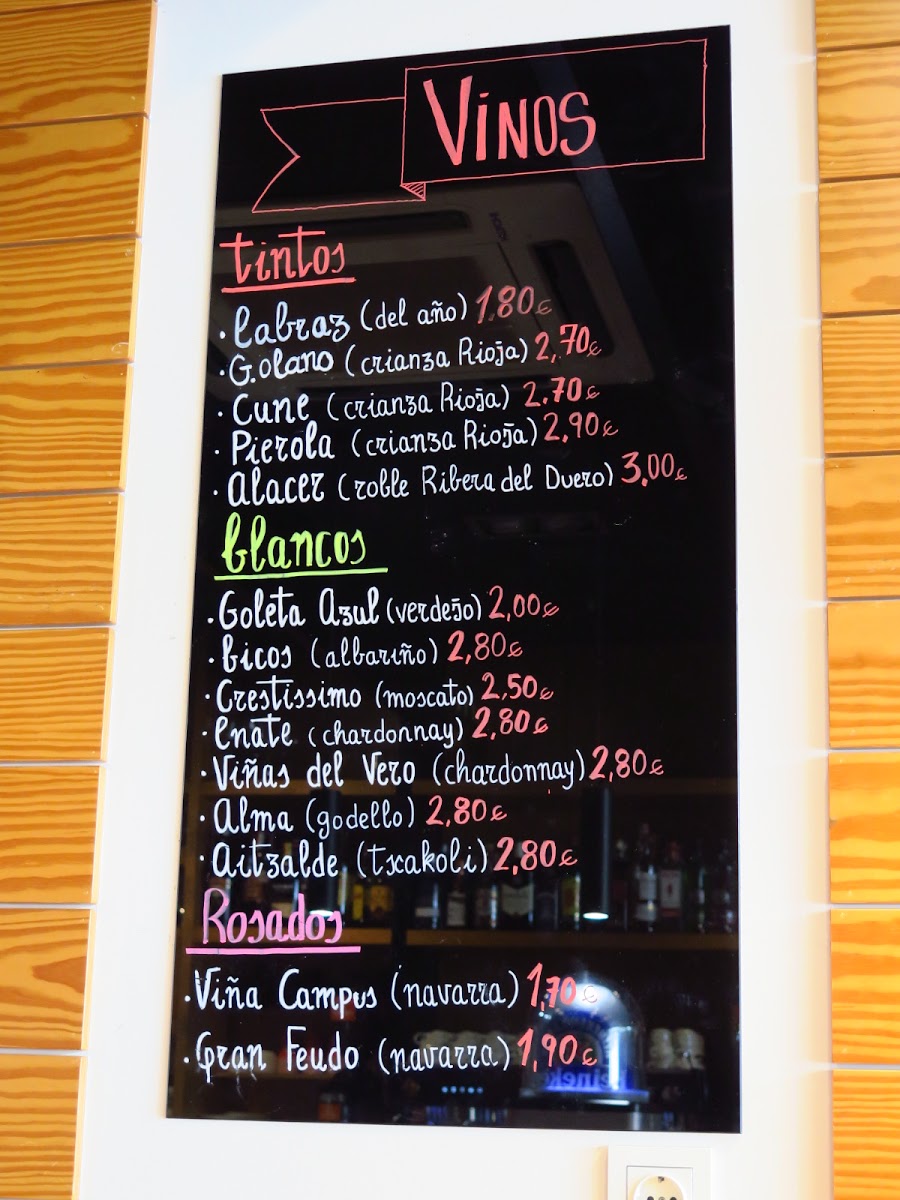 Vinos
tintos
· Labraz (del año) 1.80€
· G.olano (crianza Rioja) 2,70€
· Cune (crianza Rioja) 2.70€
· Pierola (crianza Rioja) 2,90€
· Alacer (roble Ribera del Duero) 3,00€
blancos
· Goleta Azul (verdejo) 2,00€
· bicos (albariño) 2,80€
· Crestissimo (moscato) 2,50€
· Enate (chardonnay) 2,80€
· Viñas del Vero (chardonnay) 2,80€
· Alma (godello) 2,80€
· Aitzalde (txakoli) 2,80€
Rosados
· Viña Campus (navarra) 1,70€
· Gran Feudo (navarra) 1,90€